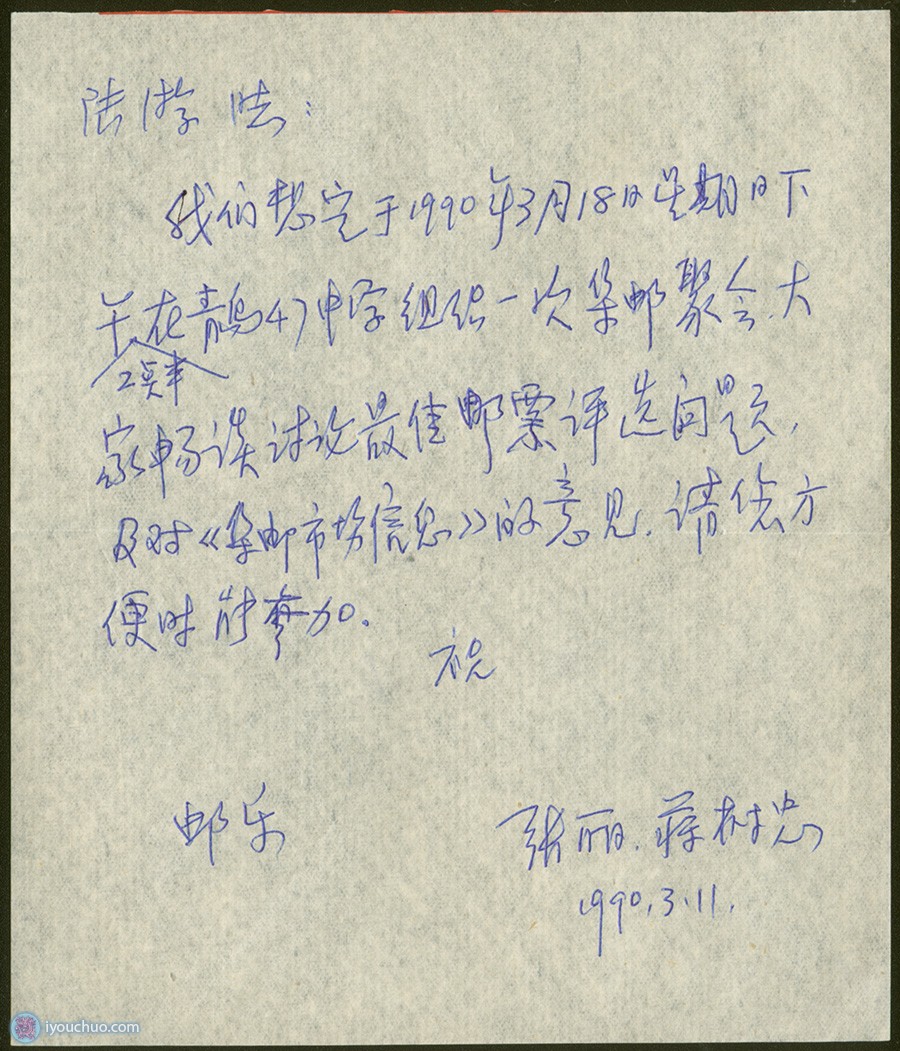 陆游陆:
我们想定于1990年3月18日星期日下
午在青岛47中学组织一次集邮聚会、大
2点半
家畅谈讨论最佳邮票评选问题,
及对《集邮市场信息》的意见. 请您方
便时能参加.
祝
邮乐
张丽. 蒋树忠
1990.3.11.
iyouchuo.com